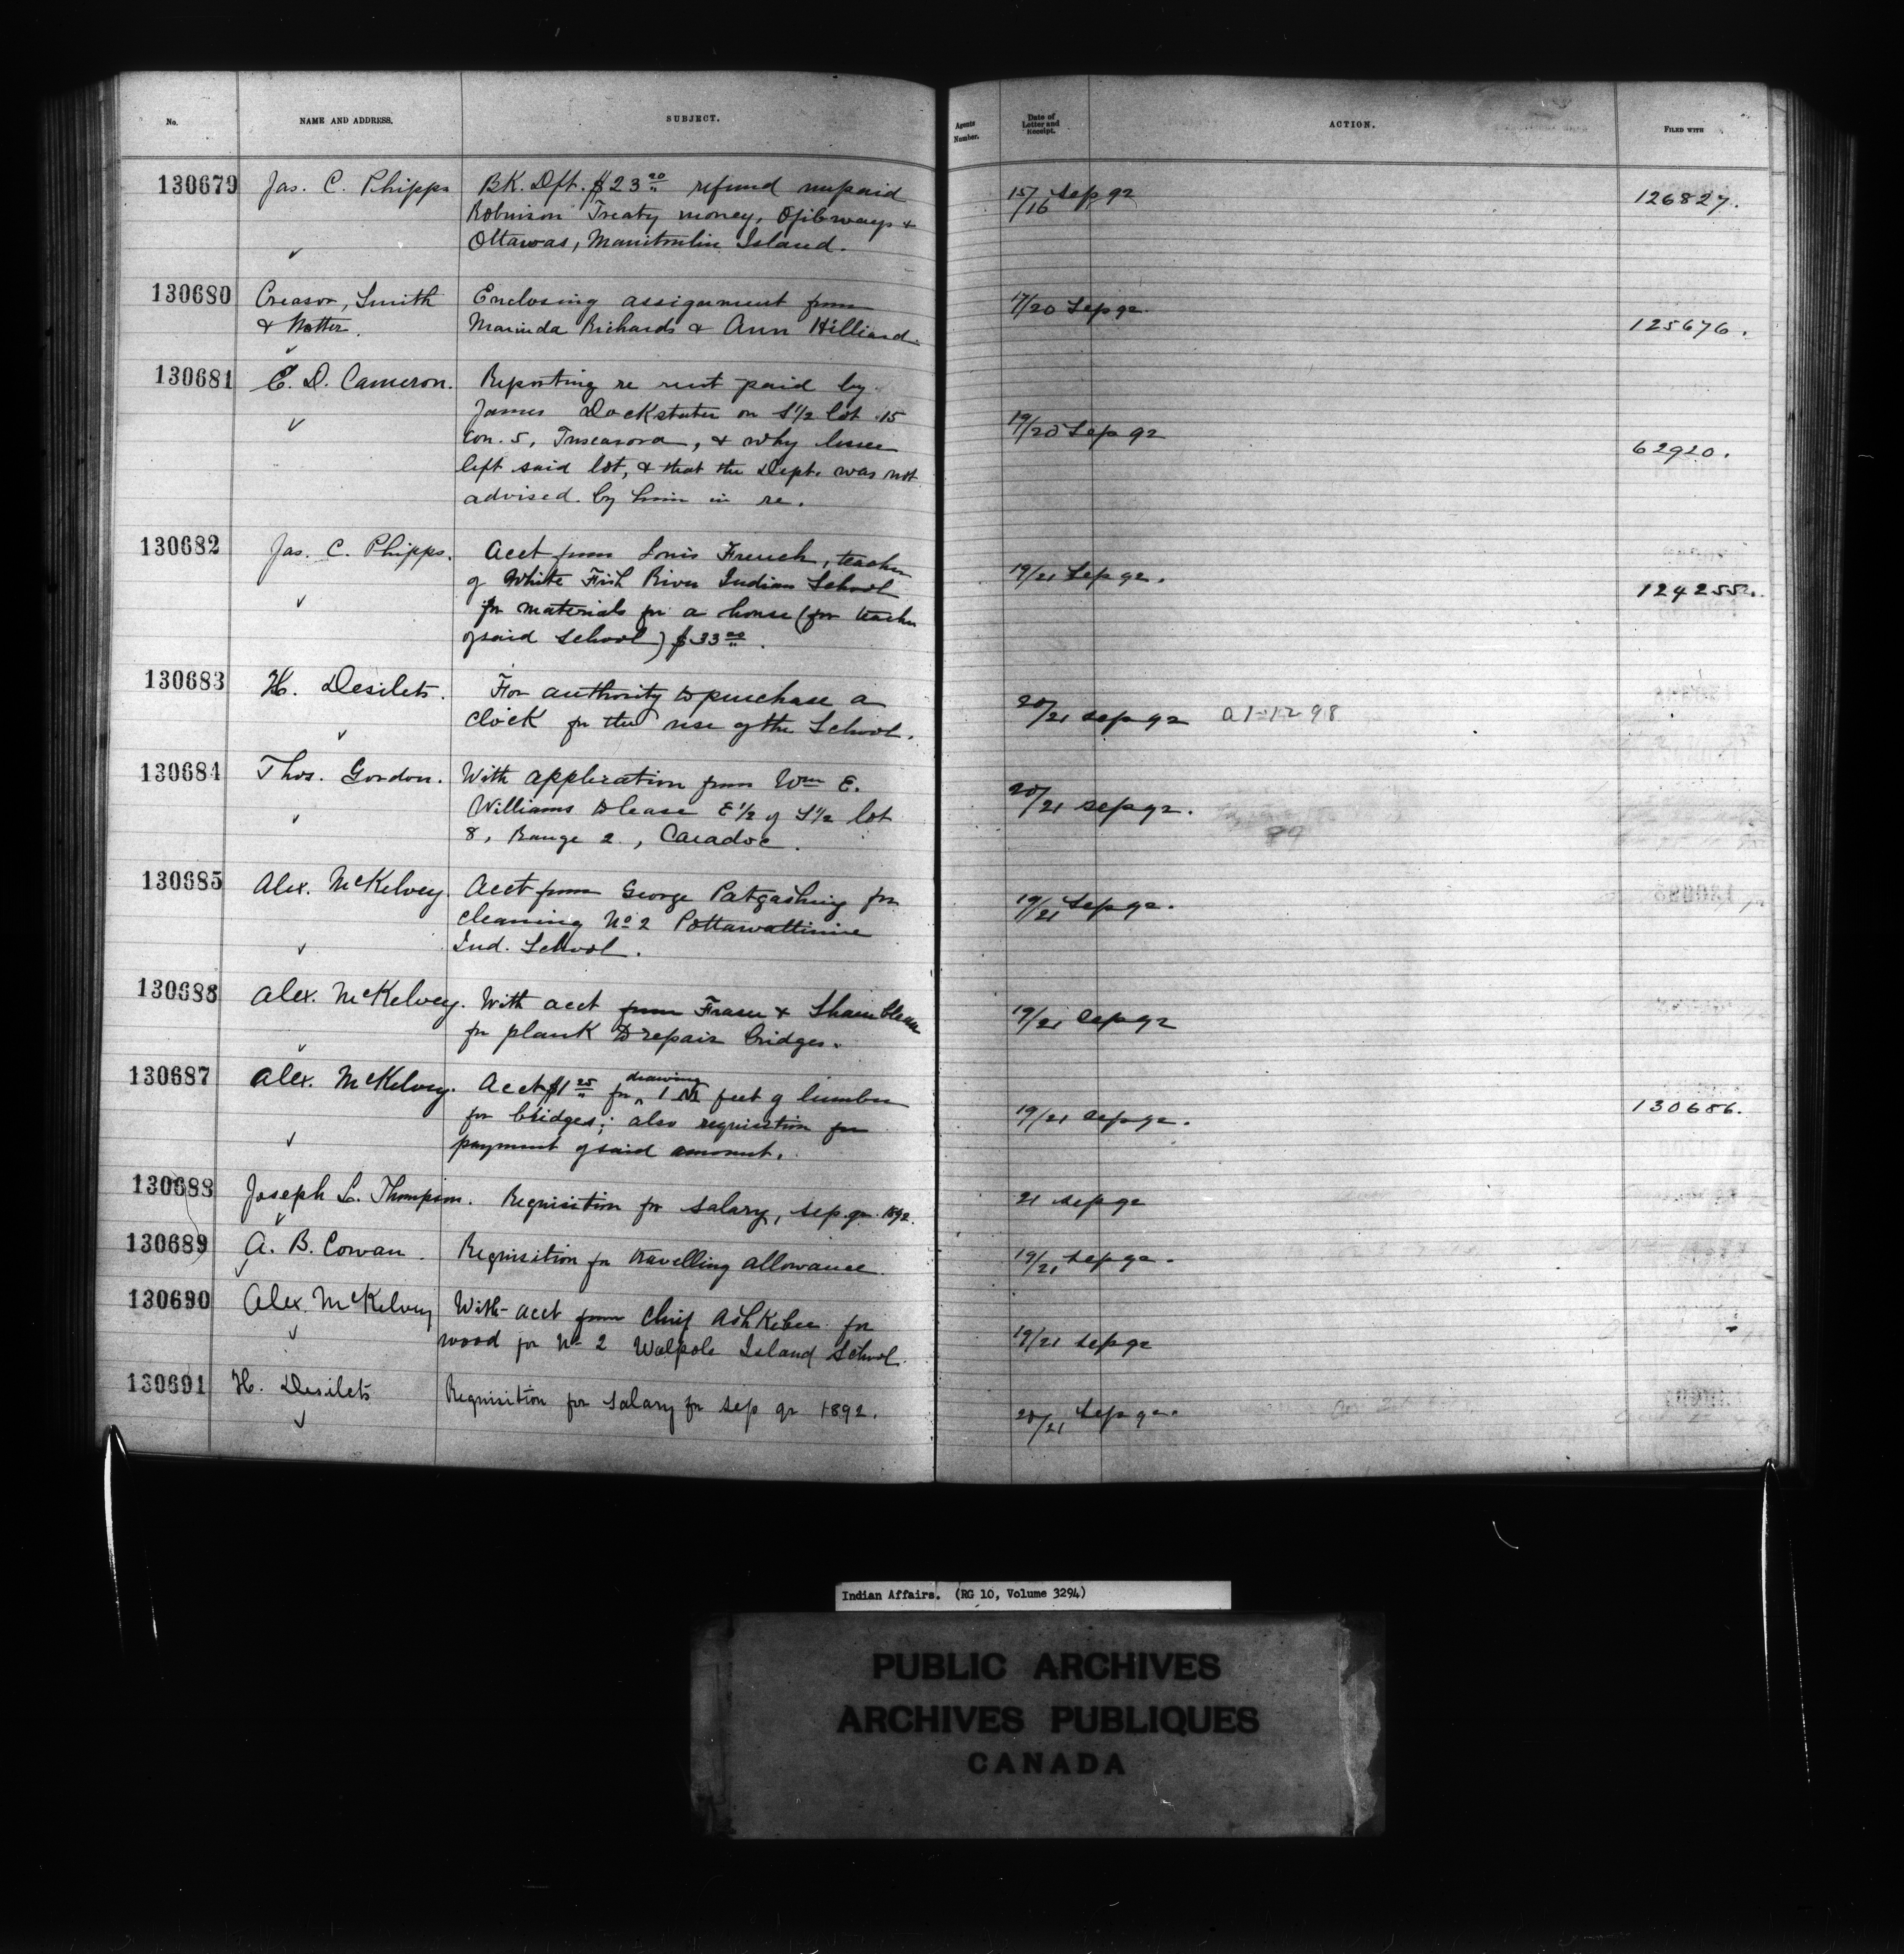 No. NAME AND ADDRESS. SUBJECT. Agents Number. Date of Letter and Receipt. ACTION. FILED WITH
130679 Jas. C. Phipps BK. Dft. $23 20 refund unpaid 15/16 Sep 92 126827.
Robinson Treaty money, Ojibways &
Ottawas, Manitoulin Island.
130680 Creasor, Smith Enclosing assignment from 17/20 Sep 92.
& Notter. Marinda Richards & Ann Hilliard. 125676.
130681 E. D. Cameron. Reporting re rent paid by
James Dockstater on S½ lot 15 19/20 Sep 92
Con. 5, Tuscarora, & why lessee 62920.
left said lot, & that the Dept. was not
advised by him in re.
130682 Jas. C. Phipps. Acct from Louis French, teacher
of White Fish River Indian School 19/21 Sep 92.
for materials for a house (for teacher 124255.
of said School) $33 00.
130683 H. Desilets. For authority to purchase a
clock for the use of the School. 20/21 Sep 92
130684 Thos. Gordon. With application from Wm E.
Williams to lease E½ of S½ lot 20/21 Sep 92.
8, Range 2, Caradoc.
130685 Alex. McKelvey. Acct from George Patgashing for 19/21 Sep 92.
cleaning No 2 Pottawattimie
Ind. School.
130686 Alex. McKelvey. With acct from Fraser &
for plank to repair bridges. 19/21 Sep 92
130687 Alex. McKelvey. Acct $1 25 for drawing 1 M feet of lumber
for bridges; also requisition for 19/21 Sep 92. 130686.
payment of said amount.
130688 Joseph L. Thompson. Requisition for salary, Sep. qr. 1892. 21 Sep 92
130689 A. B. Cowan. Requisition for travelling allowance. 19/21 Sep 92.
130690 Alex. McKelvey With acct from Chief Ashkebee for
wood for No 2 Walpole Island School. 19/21 Sep 92
130691 H. Desilets Requisition for salary for Sep qr 1892. 20/21 Sep 92.
Indian Affairs. (RG 10, Volume 3294)
PUBLIC ARCHIVES
ARCHIVES PUBLIQUES
CANADA